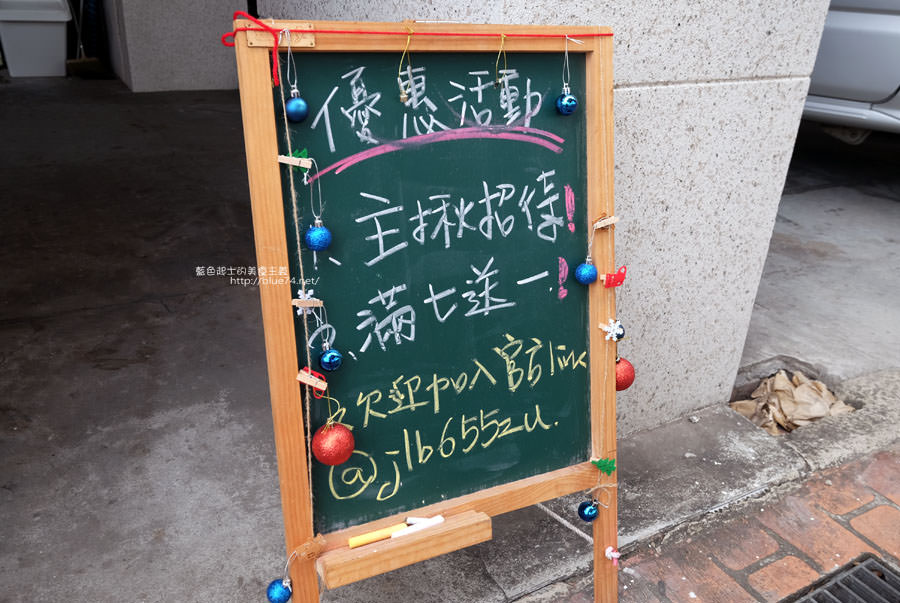 優惠活動
1. 主揪招待!
2. 滿七送一!
3. 歡迎加入官方link
@jlb6552u.
藍色起士的美食主義
http://blue74.net/